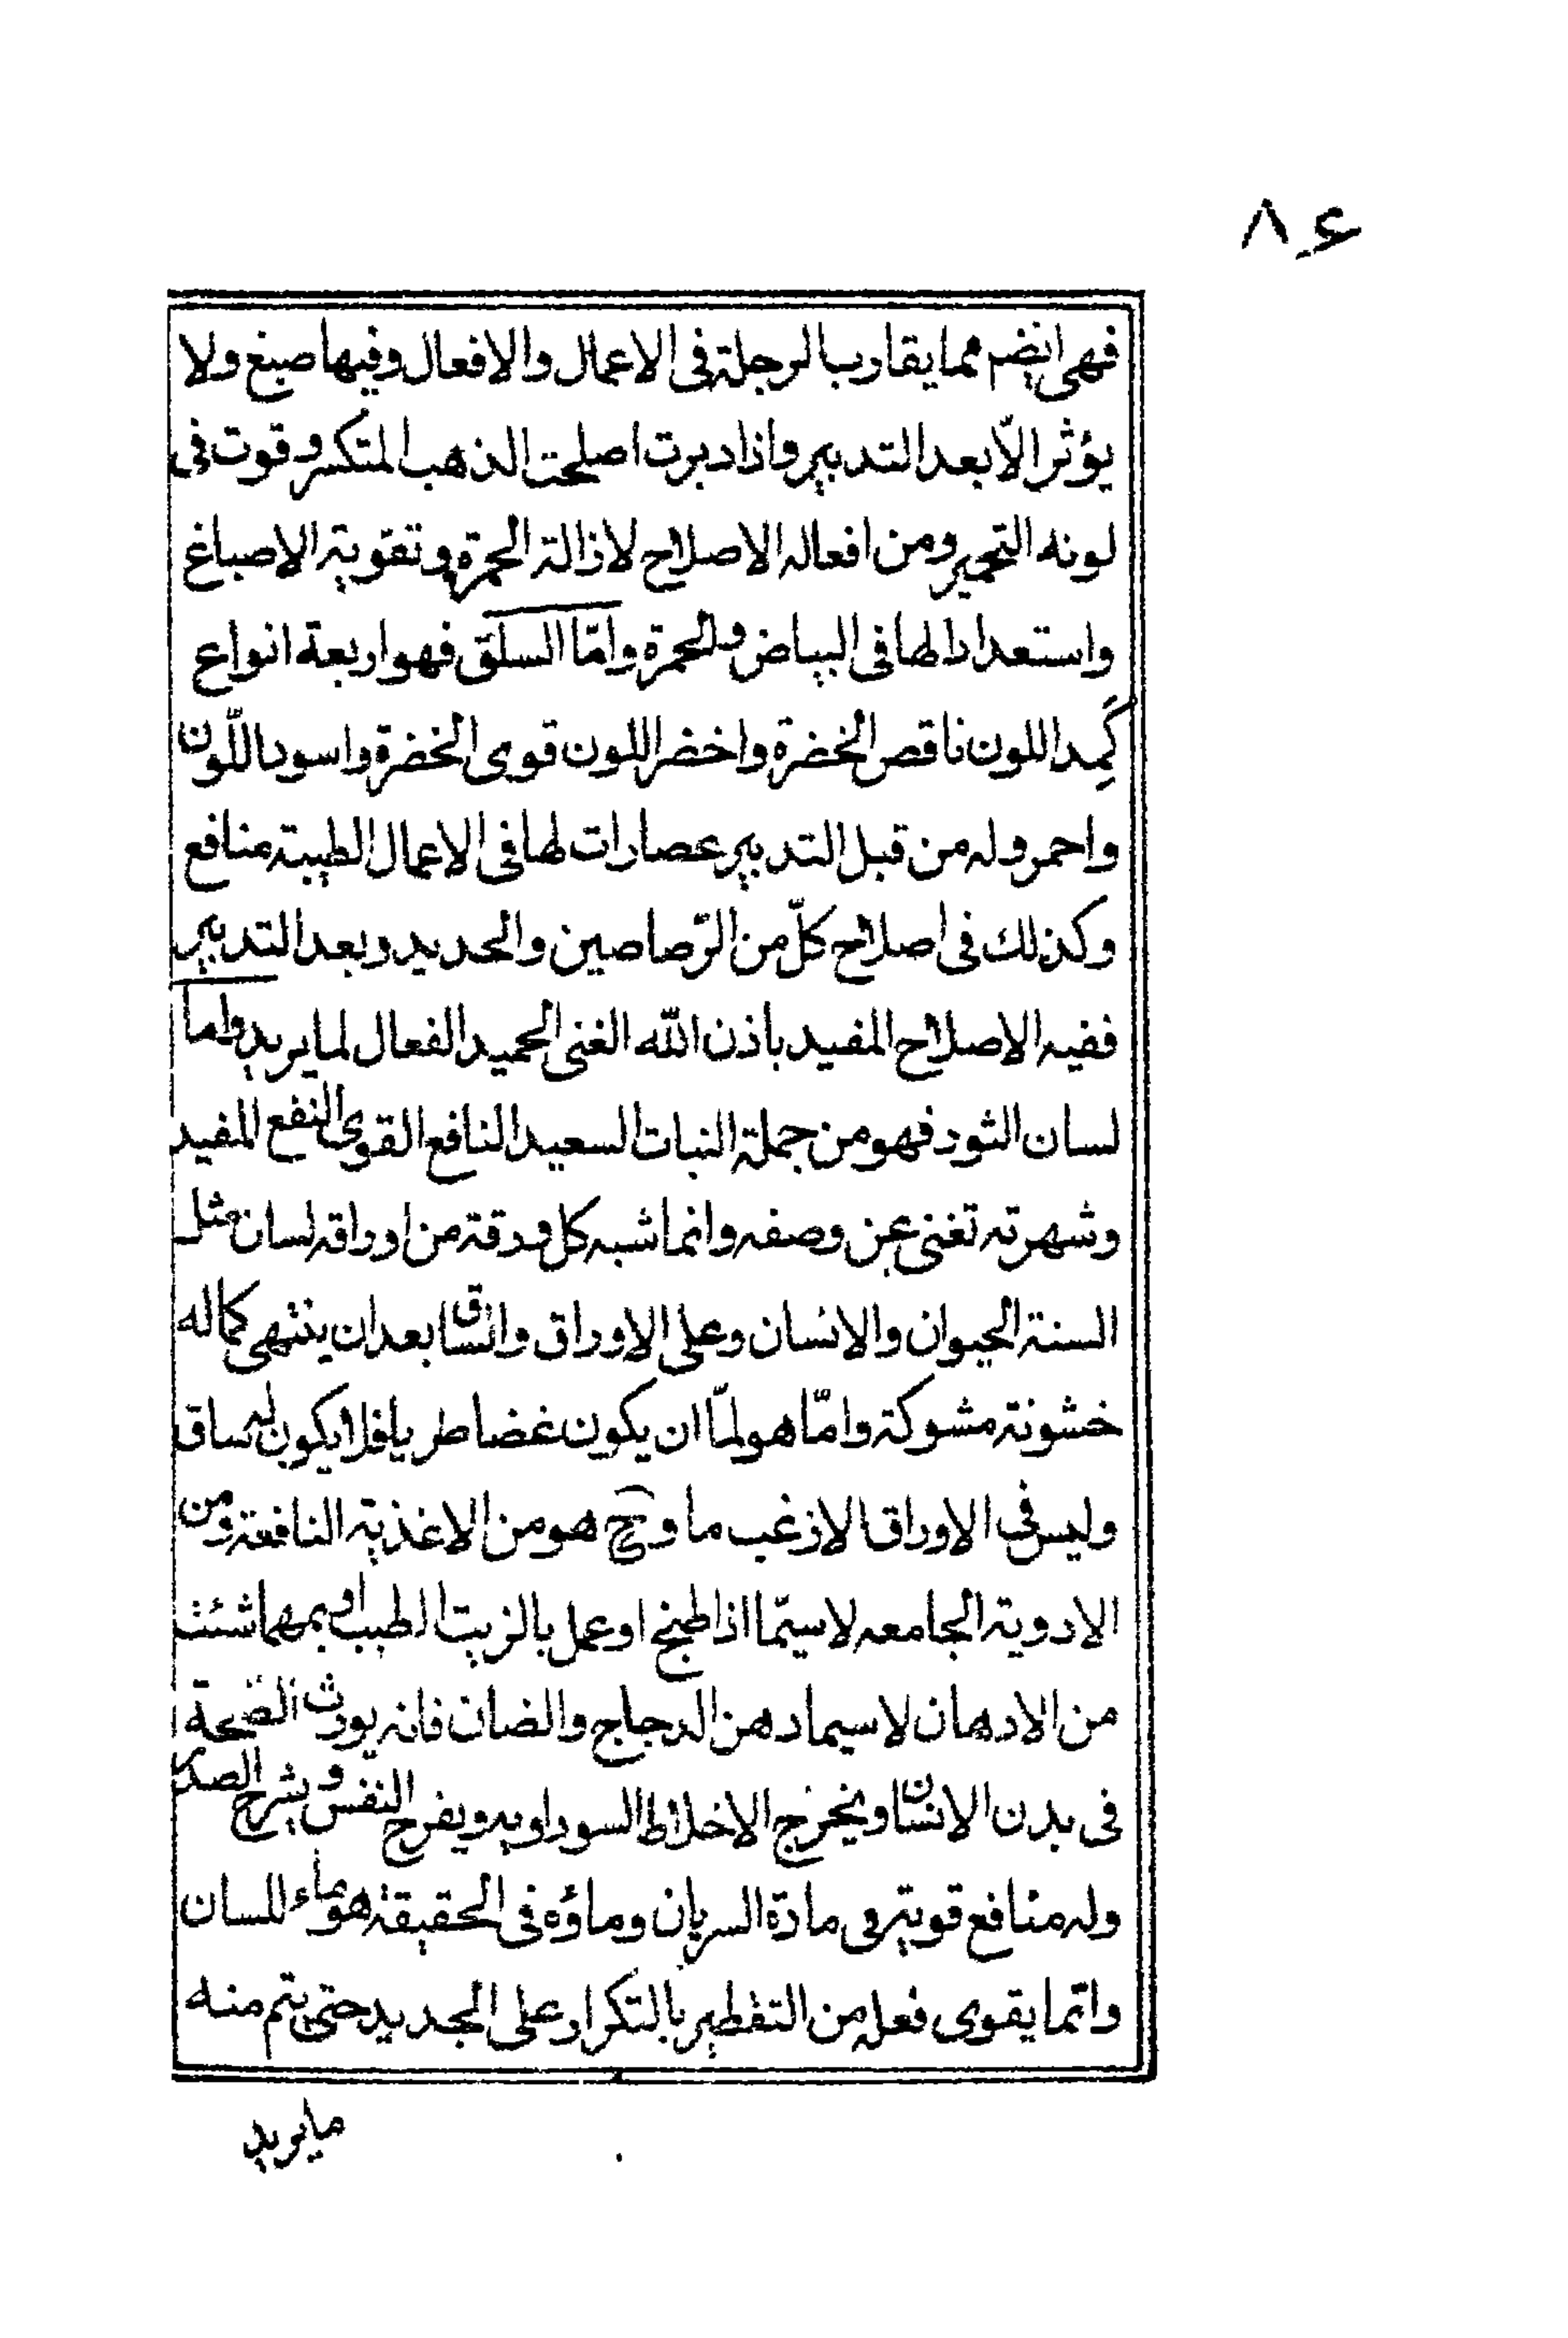 ٨٤
فهى ايضم مما يقارب الرجلة فى الاعمال والافعال وفيها صبغ ولا
يؤثر الّا بعد التدبير واذا دبرت اصلحت الذهب المتكسر وقوت فى
لونه التحمير ومن افعاله الاصلاح لازالة الحمرة وتقوية الاصباغ
واستعدادالها فى البياض والحمرة وامّا السلق فهو اربعة انواع
كَمِد اللون ناقص الخضرة واخضر اللون قوى الخضرة واسود اللّون
واحمر وله من قبل التدبير عصارات لها فى الاعمال الطبية منافع
وكذلك فى اصلاح كلّ من الرّصاصين والحديد وبعد التدبير
ففيه الاصلاح المفيد باذن الله الغنى الحميد الفعال لما يريد واما
لسان الثور فهو من جملة النبات السعيد النافع القوى النفع المفيد
وشهرته تغنى عن وصفه وانما شبه كل ورقة من اوراقه لسان مثل
السنة الحيوان والانسان وعلى الاوراق والساق بعد ان ينتهى كماله
خشونة مشوكة وامّا هو لمّا ان يكون غضا طريا فلا يكون له ساق
وليس فى الاوراق الا زغب ما وح هو من الاغذية النافعة ومن
الادوية الجامعه لا سيّما اذا طبخ او عمل بالزيت الطيب او بمهما شئت
من الادهان لا سيما دهن الدجاج والضان فانه يورث الصّحة
فى بدن الانسان ويخرج الاخلاط السوداويه ويفرح النفس ويشرح الصد
وله منافع قوية فى مادة السريان وماؤه فى الحقيقة هو ماء للسان
وانّما يقوى فعله من التقطير بالتكرار على الجديد حتى يتم منه
ما يريد